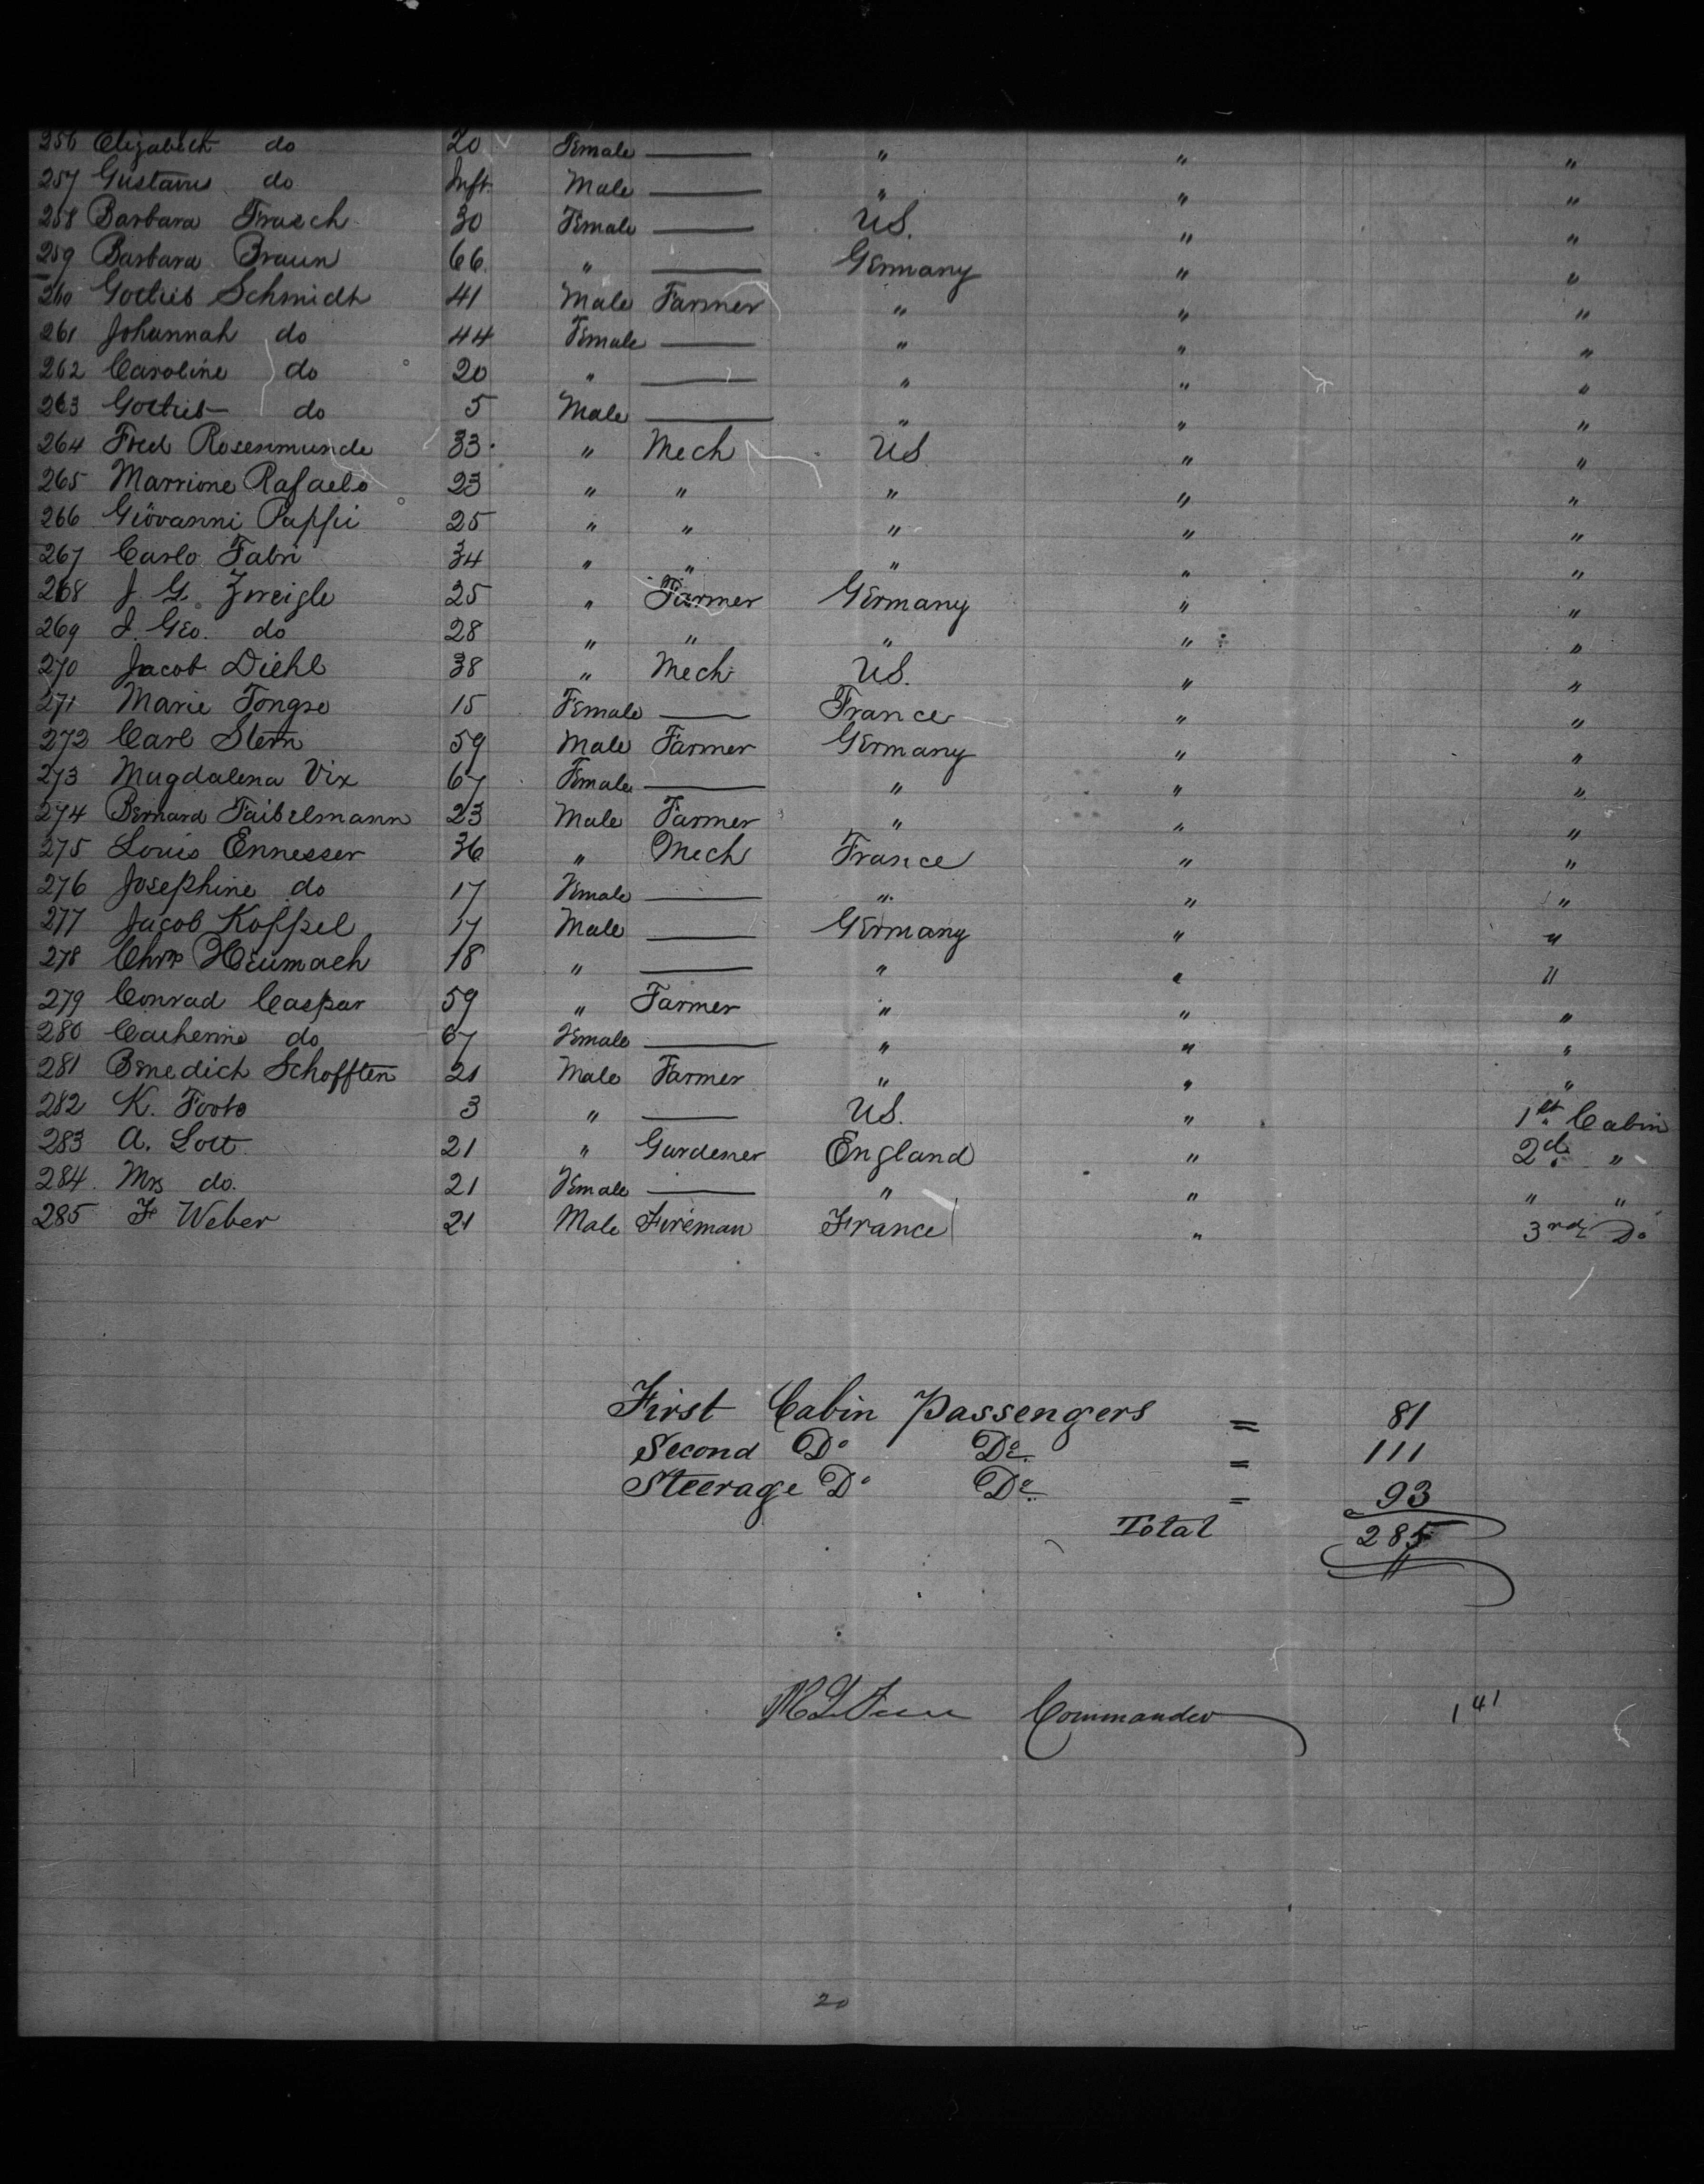 256 Elizabeth do 20 Female — " " "
257 Gustavus do Inft. Male — " " "
258 Barbara Frasch 30 Female — U.S. " "
259 Barbara Braun 66 " — Germany " "
260 Gottlieb Schmidt 41 Male Farmer " " "
261 Johannah do 44 Female — " " "
262 Caroline do 20 " — " " "
263 Gottlieb do 5 Male — " " "
264 Fred Rosenmunde 33 " Mech U.S. " "
265 Marrione Rafaelo 23 " " " " "
266 Giovanni Pappi 25 " " " " "
267 Carlo Fabri 34 " " " " "
268 J. G. Zweigle 25 " Farmer Germany " "
269 J. Geo. do 28 " " " " "
270 Jacob Diehl 38 " Mech U.S. " "
271 Marie Tongso 15 Female — France " "
272 Carl Stern 59 Male Farmer Germany " "
273 Magdalena Vix 67 Female — " " "
274 Bernard Faibelmann 23 Male Farmer " " "
275 Louis Ennesser 36 " Mech France " "
276 Josephine do 17 Female — " " "
277 Jacob Koppel 17 Male — Germany " "
278 Heumach 18 " — " " "
279 Conrad Caspar 59 " Farmer " " "
280 Catherine do 67 Female — " " "
281 Benedict Schofften 21 Male Farmer " " "
282 K. Foote 3 " — U.S. " 1st Cabin
283 A. Lott 21 " Gardener England " 2d "
284 Mrs do. 21 Female — " " " "
285 F Weber 21 Male Fireman France " 3rd Do
First Cabin Passengers = 81
Second Do Do. = 111
Steerage Do Do. = 93
Total 285
Commander 141
20